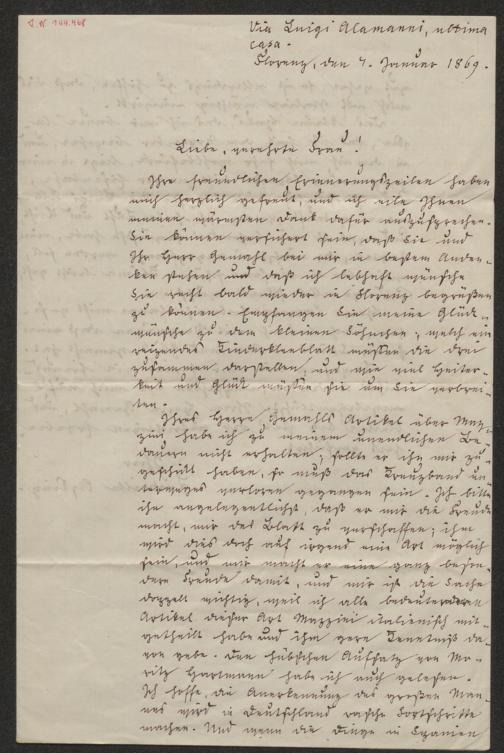 J. N 144.468
Via Luigi Alamanni, ultima
casa.
Florenz, den 7. Januar 1869.
Liebe, verehrte Frau!
Ihre freundlichen Erinnerungszeilen haben
mich herzlich gefreut, und ich eile Ihnen
meinen wärmsten Dank dafür auszusprechen.
Sie können versichert sein, daß Sie und
Ihr Herr Gemahl bei mir in bestem Anden-
ken stehen und daß ich lebhaft wünsche
Sie recht bald wieder in Florenz begrüßen
zu können. Empfangen Sie meine Glück-
wünsche zu dem kleinen Söhnchen; welch ein
reizendes Kinderkleeblatt müssen die drei
zusammen darstellen, und wie viel Heiter-
keit und Glück müssen sie um Sie verbrei-
ten.
Ihres Herrn Gemahls Artikel über Maz-
zini habe ich zu meinem unendlichen Be-
dauern nicht erhalten; sollte er ihn mir zu
geschickt haben, so muß das Kreuzband un-
terweges verloren gegangen sein. Ich bitte
ihn angelegentlichst, daß er mir die Freude
macht, mir das Blatt zu verschaffen; ihm
wird dies doch auf irgend eine Art möglich
sein, und mir macht er eine ganz beson-
dere Freude damit, und mir ist die Sache
doppelt wichtig, weil ich alle bedeutenderen
Artikel dieser Art Mazzini italienisch mit-
getheilt habe und ihm gern Kenntniß da-
von gebe. Den hübschen Aufsatz von Mo-
ritz Hartmann habe ich auch gelesen.
Ich hoffe, die Anerkennung des großen Man-
nes wird in Deutschland rasche Fortschritte
machen. Und wenn die Dinge in Spanien